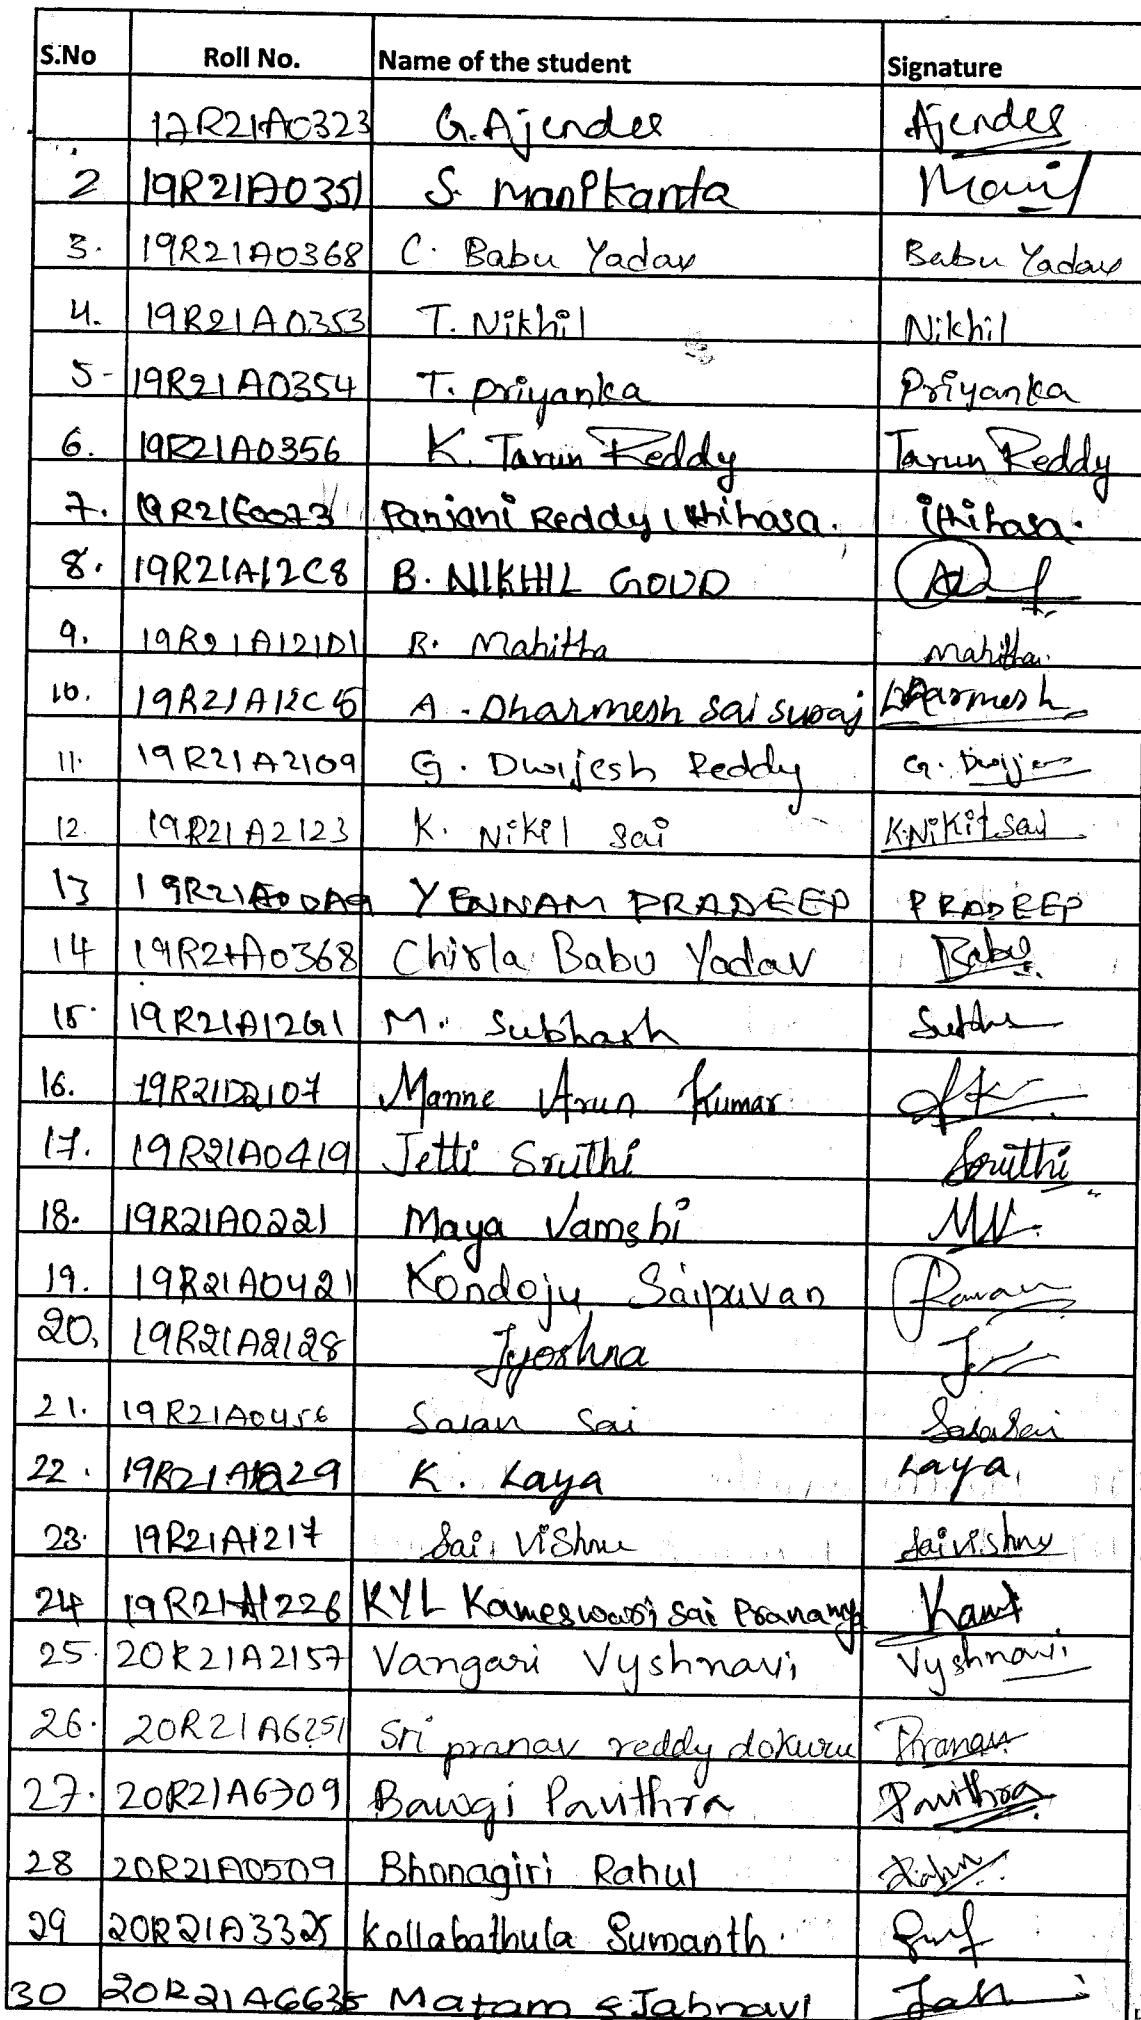 S.No Roll No. Name of the student Signature
17R21A0323 G.Ajender Ajender
2 19R21A0351 S. Manikanta Mani
3. 19R21A0368 C. Babu Yadav Babu Yadav
4. 19R21A0353 T. Nikhil Nikhil
5- 19R21A0354 T. Priyanka Priyanka
6. 19R21A0356 K. Tarun Reddy Tarun Reddy
7. 19R21E0073 Panjani Reddy Ithihasa. ithihasa.
8. 19R21A12C8 B. NIKHIL GOUD
9. 19R21A121D1 R. Mahitha Mahitha.
10. 19R21A12C5 A. Dharmesh Sai suraj Dharmesh
11. 19R21A2109 G. Dwijesh Reddy G. Dwijesh
12. 19R21A2123 K. Nikil Sai K.Nikil Sai
13 19R21E00A9 YENNAM PRADEEP PRADEEP
14 19R21A0368 Chirla Babu Yadav Babu
15. 19R21A12G1 M. Subhash
16. 19R21D2107 Manne Arun Kumar
17. 19R21A0419 Jetti Sruthi Sruthi
18. 19R21A0221 Maya Vamshi MV.
19. 19R21A0421 Kondoju Saipavan Pavan
20. 19R21A2128 Jyoshna
21. 19R21A0456 Saran Sai
22. 19R21A1229 K. Laya Laya
23. 19R21A1217 Sai Vishnu Saivishnu
24 19R21A1226 KYL Kameswari Sai Pranamya
25. 20R21A2157 Vangari Vyshnavi Vyshnavi
26. 20R21A6251 Sri pranav reddy dokuru Pranav
27. 20R21A6709 Bawgi Pavithra Pavithra
28 20R21A0509 Bhonagiri Rahul
29 20R21A3325 Kollabathula Sumanth.
30 20R21A6635 Matam S Jahnavi